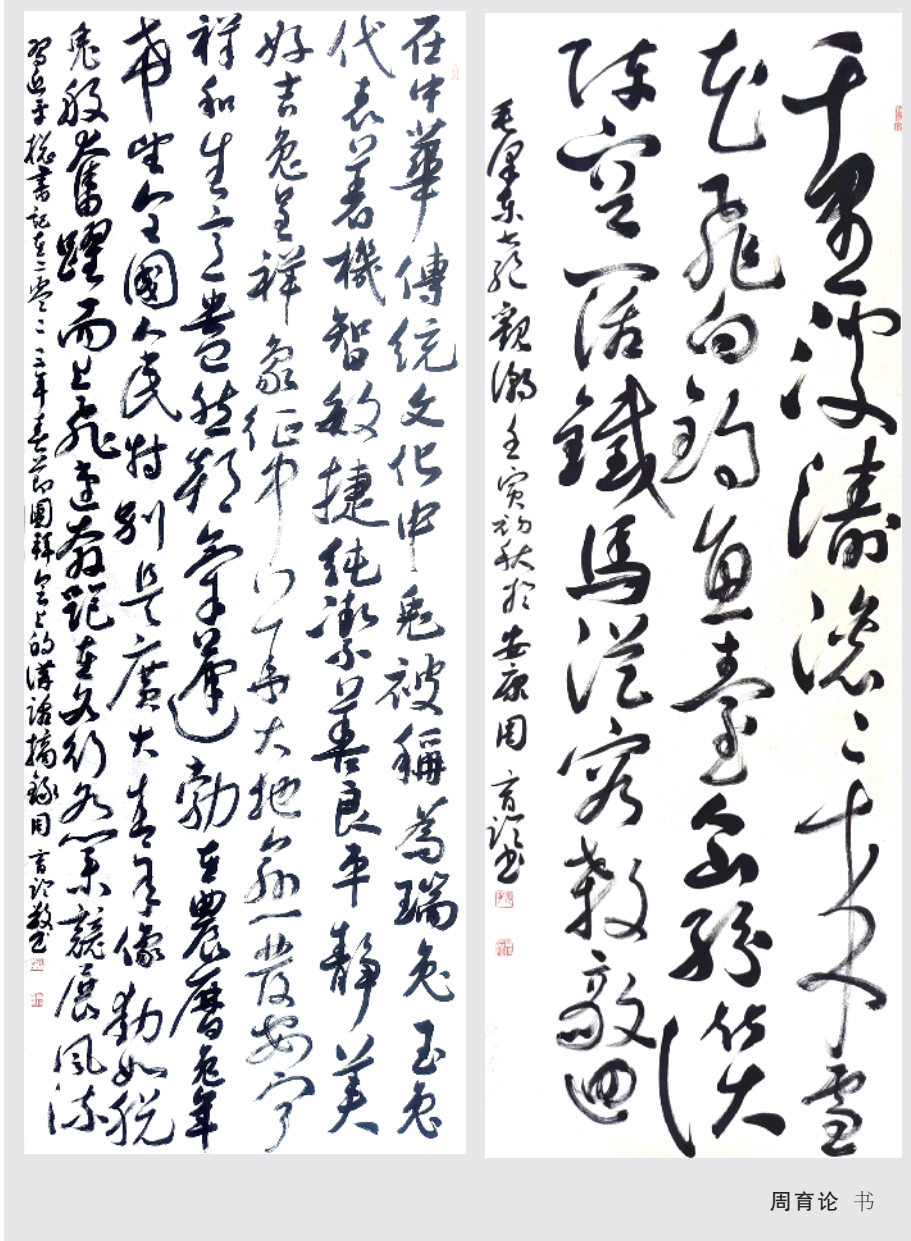 千里波濤滾滾来雪
花飛向釣魚臺人山紛贊
陣容闊鐵馬從容殺敵迴
毛澤东七绝觀潮壬寅初秋於安康周育论书
在中華傳統文化中兔被稱為瑞兔玉兔
代表著機智敏捷純潔善良平靜美
好吉兔呈祥象征中 大地 發安宁
祥和生意盎然朝氣蓬勃在農曆兔年
希望全國人民特别是廣大青年像動如脱
兔般奮躍而上飛速奔跑在各行各業競展風流
習近平總書記在二零二三年春节團拜會上的講話摘錄周育论敬书
周育论 书